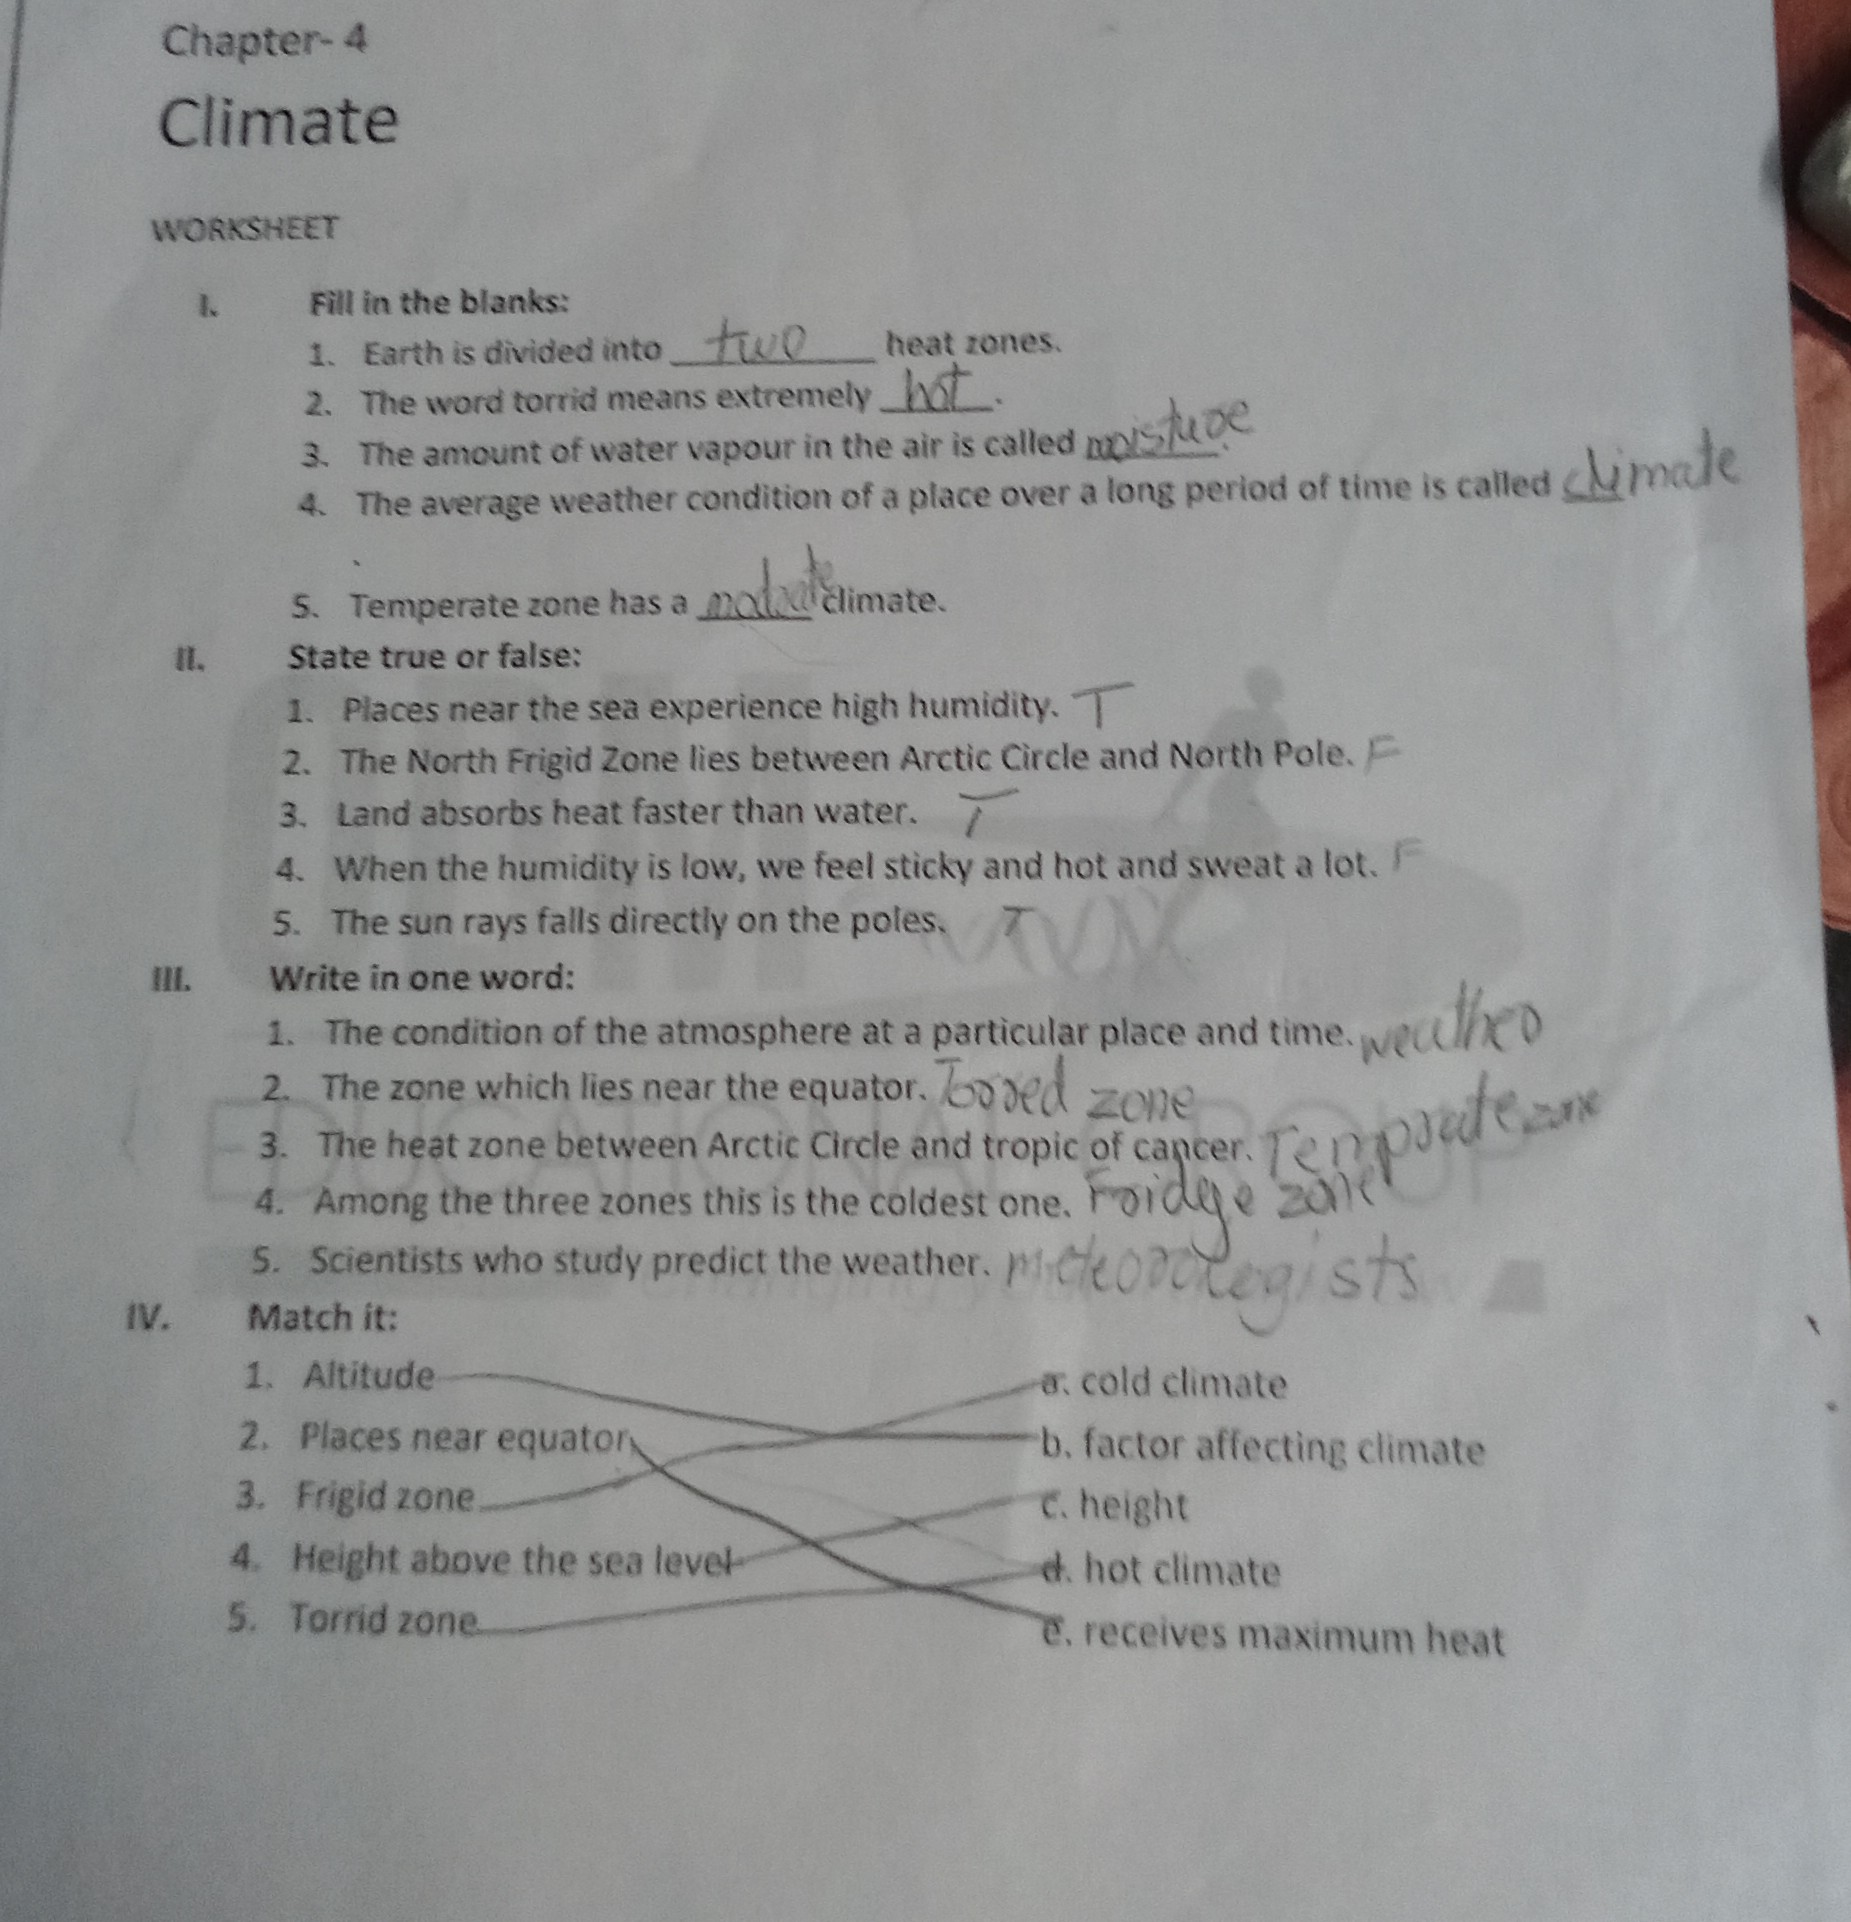 Chapter- 4
Climate
WORKSHEET
I. Fill in the blanks:
1. Earth is divided into two heat zones.
2. The word torrid means extremely hot.
3. The amount of water vapour in the air is called moisture.
4. The average weather condition of a place over a long period of time is called climate
.
5. Temperate zone has a climate.
II. State true or false:
1. Places near the sea experience high humidity. T
2. The North Frigid Zone lies between Arctic Circle and North Pole. F
3. Land absorbs heat faster than water. T
4. When the humidity is low, we feel sticky and hot and sweat a lot. F
5. The sun rays falls directly on the poles. T
III. Write in one word:
1. The condition of the atmosphere at a particular place and time. weather
2. The zone which lies near the equator. zone
3. The heat zone between Arctic Circle and tropic of cancer. Temprate zone
4. Among the three zones this is the coldest one. Fridge zone
5. Scientists who study predict the weather. meteorolegists
IV. Match it:
1. Altitude a. cold climate
2. Places near equator b. factor affecting climate
3. Frigid zone c. height
4. Height above the sea level d. hot climate
5. Torrid zone e. receives maximum heat